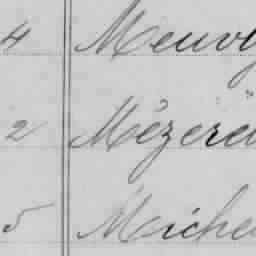 4 Meuvy
2 Mézeré
5 Miche